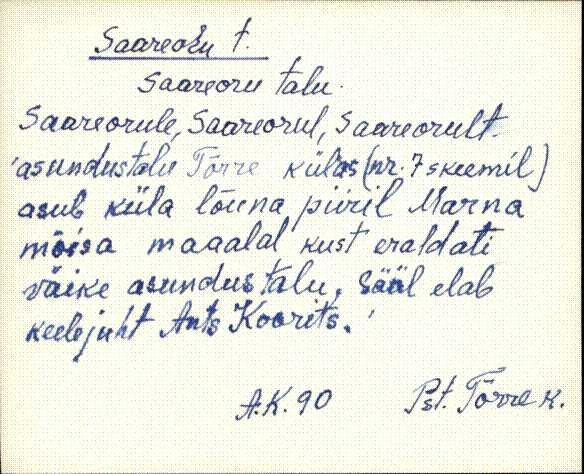 Saareoru t.
Saareoru talu.
Saareorule, Saareorul, Saareorult.
'asundustalu Tõrre külas (nr. 7 skeemil)
asub küla lõuna piiril Marna
mõisa maaalal kust eraldati
väike asundustalu. Sääl elab
keelejuht Ants Koorits.'
A.K. 90 Pst. Tõrre k.